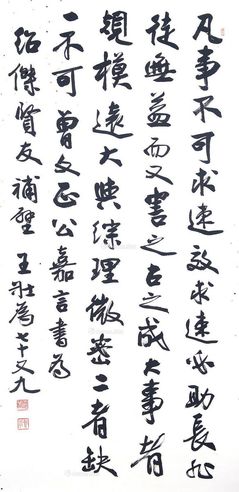 凡事不可求速效求速必助長非
徒無益而又害之古之成大事者
規模遠大與綜理微密二者缺
一不可 曾文正公嘉言書為
紹傑賢友補壁 王壯為七十又九